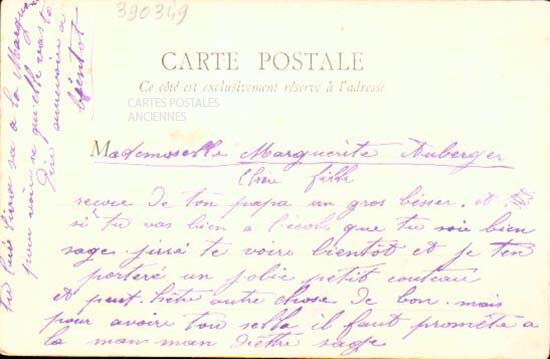 390349
CARTE POSTALE
Ce côté est exclusivement réservé à l'adresse
CARTES POSTALES
ANCIENNES
Mademoselle Marguerite Auberger
Chère fille
recoie de ton papa un gros bésser. et
si tu vas bien a l'école que tu soie bien
sage jirré te voire bientôt et je ten
porteré un jolie petit couteau
et peut. hêtre autre chose de bon. mais
pour avoire tou sella il faut promêtre a
la man man d'être sage
tu lui dira a la
pour voire si qu'elle vas te
a
bientot